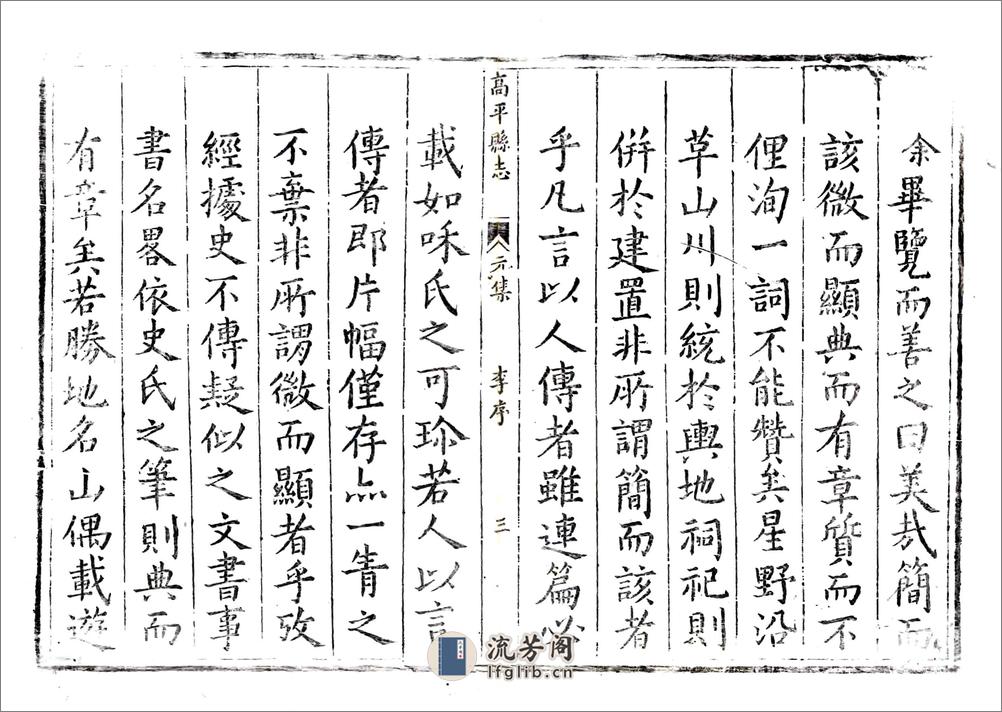 余畢覽而善之曰美哉簡而
該微而顯典而有章質而不
俚洵一詞不能贊矣星野沿
革山川則統於輿地祠祀則
併於建置非所謂簡而該者
乎凡言以人傳者雖連篇必
高平縣志 元集 李序 三
載如咊氏之可珎若人以言
傳者即片幅僅存亦一青之
不棄非所謂微而顯者乎攷
經據史不傳疑似之文書事
書名畧依史氏之筆則典而
有章矣若勝地名山偶載遊
流芳阁
lfglib.cn